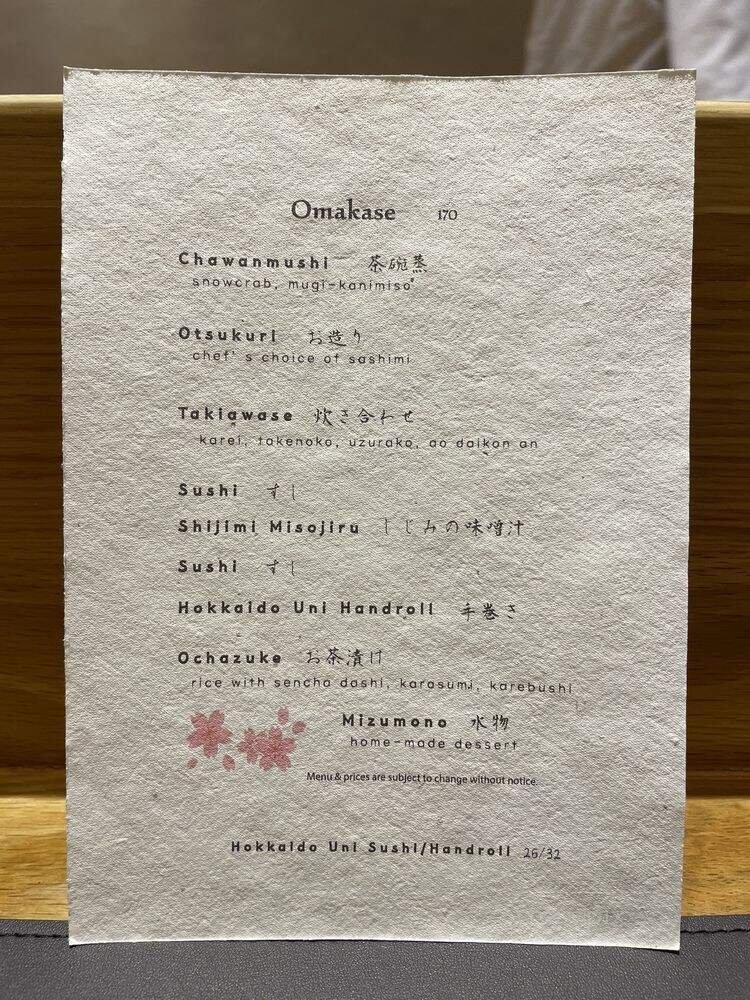 Omakase 170
Chawanmushi 茶碗蒸
snowcrab, mugi-kanimiso
Otsukuri お造り
chef's choice of sashimi
Takiawase 炊き合わせ
karei, takenoko, uzurako, ao daikon an
Sushi すし
Shijimi Misojiru しじみの味噌汁
Sushi すし
Hokkaido Uni Handroll 手巻き
Ochazuke お茶漬け
rice with sencha dashi, karasumi, karebushi
Mizumono 水物
home-made dessert
Menu & prices are subject to change without notice.
Hokkaido Uni Sushi/Handroll 26/32